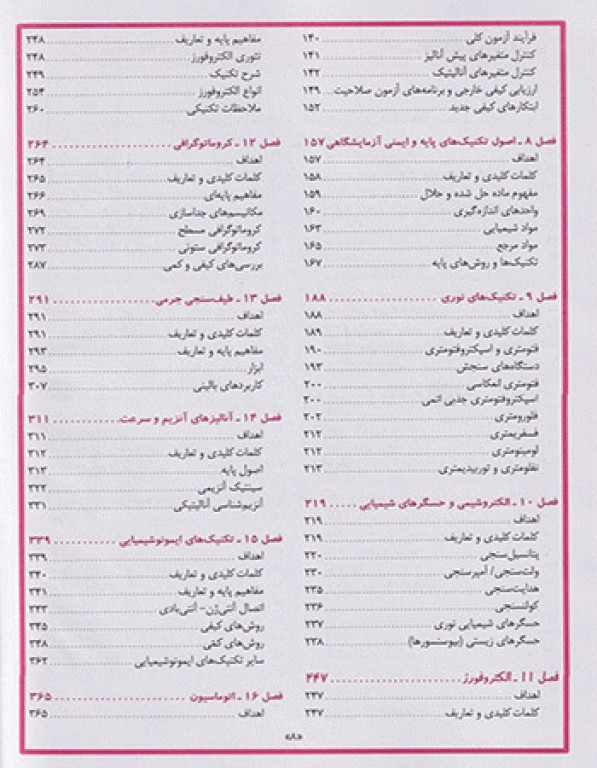 فرآیند آزمون کلی ۱۴۰
کنترل متغیرهای پیش آنالیز ۱۴۱
کنترل متغیرهای آنالیتیک ۱۴۲
ارزیابی کیفی خارجی و برنامه‌های آزمون صلاحیت ۱۴۹
ابتکارهای کیفی جدید ۱۵۲
فصل ۸ ـ اصول تکنیک‌های پایه و ایمنی آزمایشگاهی ۱۵۷
اهداف ۱۵۷
کلمات کلیدی و تعاریف ۱۵۸
مفهوم ماده حل شده و حلال ۱۵۹
واحدهای اندازه‌گیری ۱۶۰
مواد شیمیایی ۱۶۳
مواد مرجع ۱۶۵
تکنیک‌ها و روش‌های پایه ۱۶۷
فصل ۹ ـ تکنیک‌های نوری ۱۸۸
اهداف ۱۸۸
کلمات کلیدی و تعاریف ۱۸۹
فتومتری و اسپکتروفتومتری ۱۹۰
دستگاه‌های سنجش ۱۹۳
فتومتری انعکاسی ۲۰۰
اسپکتروفتومتری جذبی اتمی ۲۰۰
فلورومتری ۲۰۲
فسفریمتری ۲۱۲
لومینومتری ۲۱۲
نفلومتری و توربیدیمتری ۲۱۳
فصل ۱۰ ـ الکتروشیمی و حسگرهای شیمیایی ۲۱۹
اهداف ۲۱۹
کلمات کلیدی و تعاریف ۲۱۹
پتانسیل‌سنجی ۲۲۰
ولت‌سنجی/ آمپرسنجی ۲۳۰
هدایت‌سنجی ۲۳۵
کولنسنجی ۲۳۶
حسگرهای شیمیایی نوری ۲۳۷
حسگرهای زیستی (بیوسنسورها) ۲۳۸
فصل ۱۱ ـ الکتروفورز ۲۴۷
اهداف ۲۴۷
کلمات کلیدی و تعاریف ۲۴۷
مفاهیم پایه و تعاریف ۲۴۸
تئوری الکتروفورز ۲۴۸
شرح تکنیک ۲۴۹
انواع الکتروفورز ۲۵۴
ملاحظات تکنیکی ۲۶۰
فصل ۱۲ ـ کروماتوگرافی ۲۶۴
اهداف ۲۶۴
کلمات کلیدی و تعاریف ۲۶۵
مفاهیم پایه‌ای ۲۶۶
مکانیسم‌های جداسازی ۲۶۹
کروماتوگرافی مسطح ۲۷۲
کروماتوگرافی ستونی ۲۷۳
بررسی‌های کیفی و کمی ۲۸۷
فصل ۱۳ ـ طیف‌سنجی جرمی ۲۹۱
اهداف ۲۹۱
کلمات کلیدی و تعاریف ۲۹۱
مفاهیم پایه و تعاریف ۲۹۳
ابزار ۲۹۵
کاربردهای بالینی ۳۰۷
فصل ۱۴ ـ آنالیزهای آنزیم و سرعت ۳۱۱
اهداف ۳۱۱
کلمات کلیدی و تعاریف ۳۱۲
اصول پایه ۳۱۳
سینتیک آنزیمی ۳۲۲
آنزیم‌شناسی آنالیتیکی ۳۳۱
فصل ۱۵ ـ تکنیک‌های ایمونوشیمیایی ۳۳۹
اهداف ۳۳۹
کلمات کلیدی و تعاریف ۳۴۰
مفاهیم پایه و تعاریف ۳۴۱
اتصال آنتی‌ژن- آنتی‌بادی ۳۴۳
روش‌های کیفی ۳۴۵
روش‌های کمّی ۳۴۸
سایر تکنیک‌های ایمونوشیمیایی ۳۶۲
فصل ۱۶ ـ اتوماسیون ۳۶۵
اهداف ۳۶۵
«۸»